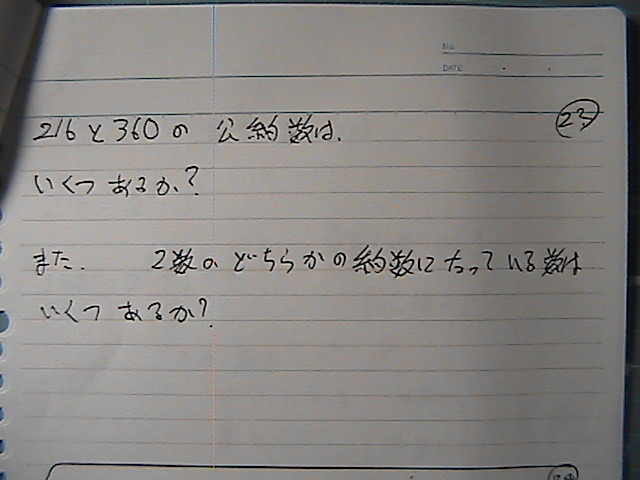 NO.
DATE
23
216と360の 公約数は、
いくつあるか?
また、 2数のどちらかの約数になっている数は
いくつあるか?